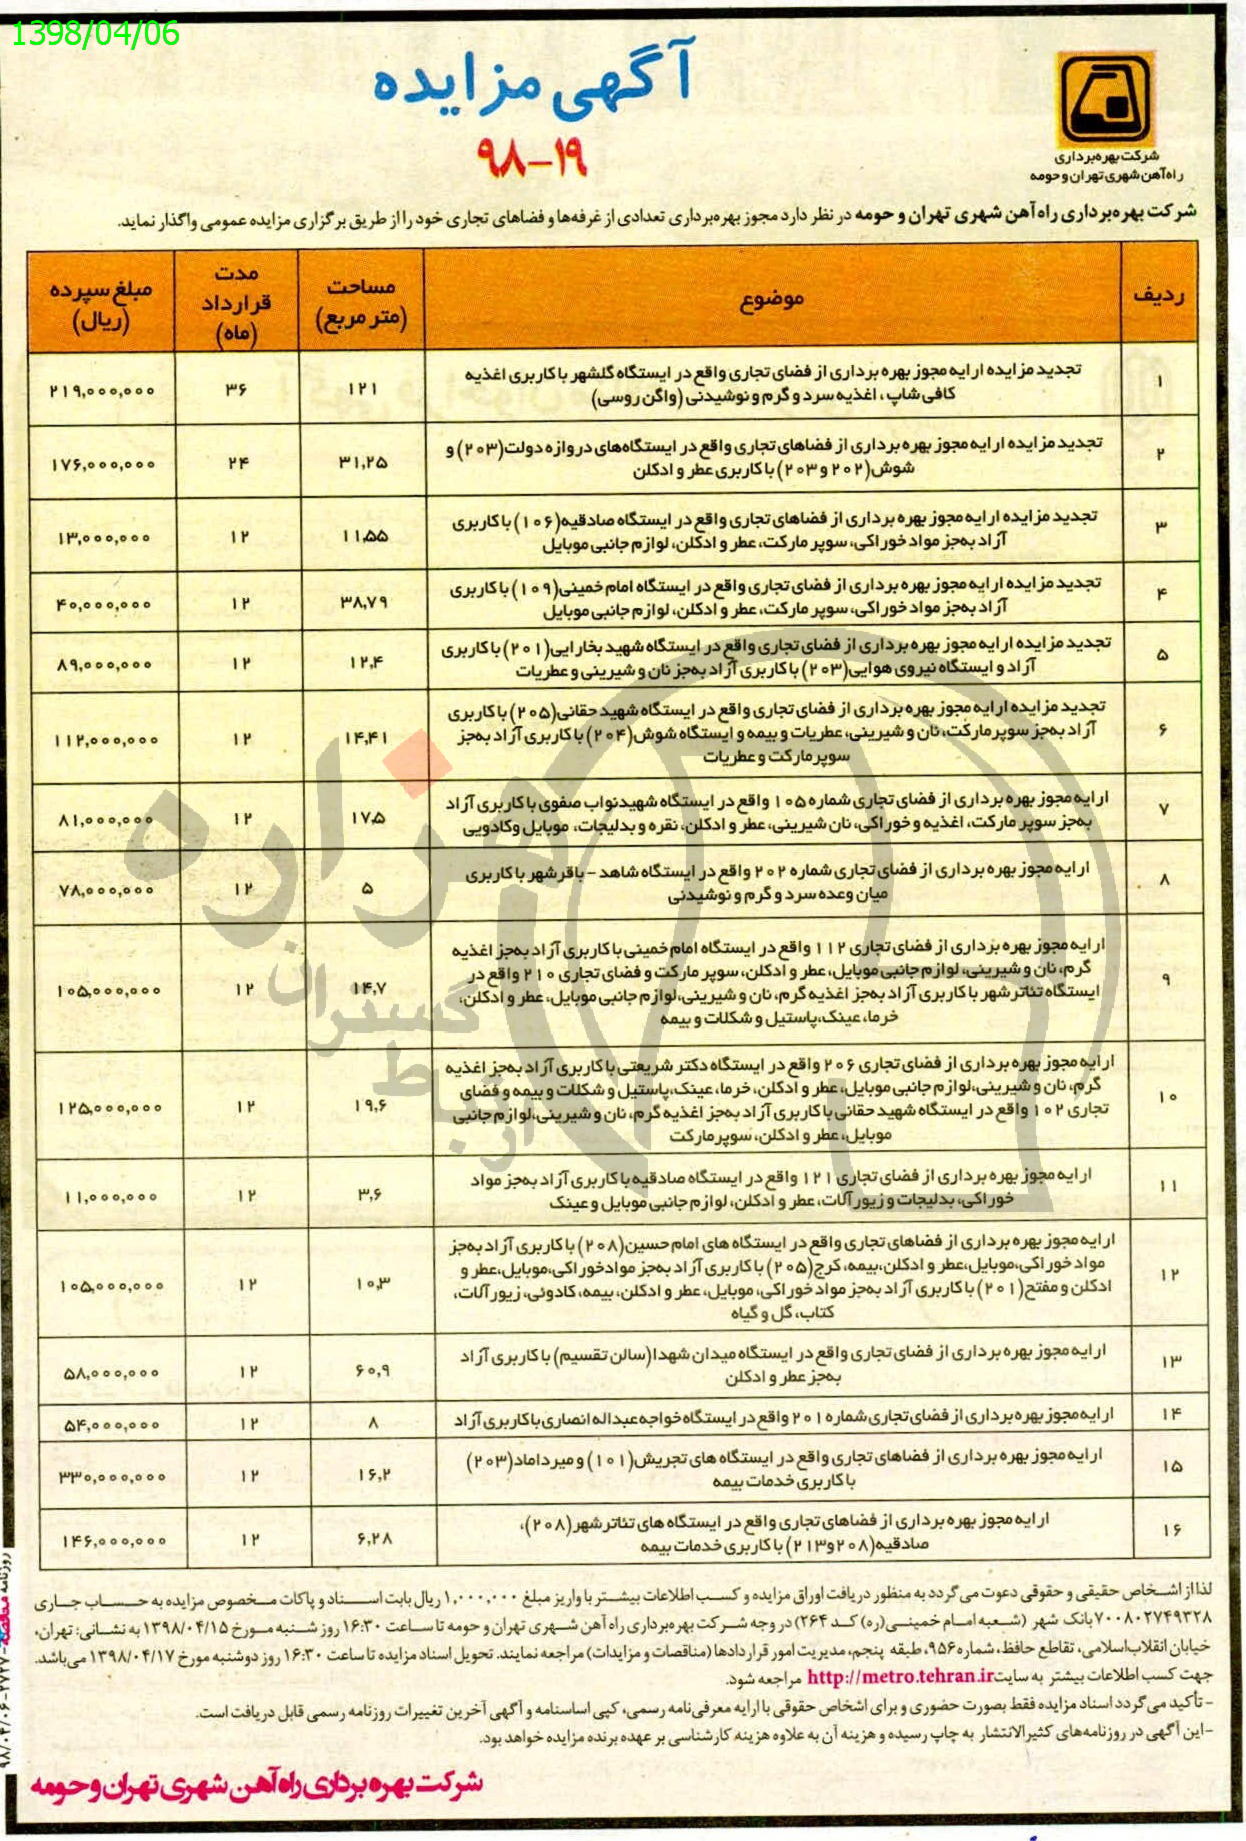 1398/04/06
آگهی مزایده
۹۸-۱۹
شرکت بهره‌برداری
راه‌آهن شهری تهران و حومه
شرکت بهره‌برداری راه‌آهن شهری تهران و حومه در نظر دارد مجوز بهره‌برداری تعدادی از غرفه‌ها و فضاهای تجاری خود را از طریق برگزاری مزایده عمومی واگذار نماید.
ردیف موضوع مساحت (متر مربع) مدت قرارداد (ماه) مبلغ سپرده (ریال)
۱ تجدید مزایده ارایه مجوز بهره برداری از فضای تجاری واقع در ایستگاه گلشهر با کاربری اغذیه
کافی شاپ، اغذیه سرد و گرم و نوشیدنی (واگن روسی) ۱۲۱ ۳۶ ۲۱۹,۰۰۰,۰۰۰
۲ تجدید مزایده ارایه مجوز بهره برداری از فضاهای تجاری واقع در ایستگاه‌های دروازه دولت(۲۰۳) و
شوش(۲۰۲ و ۲۰۳) با کاربری عطر و ادکلن ۳۱,۲۵ ۲۴ ۱۷۶,۰۰۰,۰۰۰
۳ تجدید مزایده ارایه مجوز بهره برداری از فضاهای تجاری واقع در ایستگاه صادقیه(۱۰۶) با کاربری
آزاد به‌جز مواد خوراکی، سوپر مارکت، عطر و ادکلن، لوازم جانبی موبایل ۱۱,۵۵ ۱۲ ۱۳,۰۰۰,۰۰۰
۴ تجدید مزایده ارایه مجوز بهره برداری از فضای تجاری واقع در ایستگاه امام خمینی(۱۰۹) با کاربری
آزاد به‌جز مواد خوراکی، سوپر مارکت، عطر و ادکلن، لوازم جانبی موبایل ۳۸,۷۹ ۱۲ ۴۰,۰۰۰,۰۰۰
۵ تجدید مزایده ارایه مجوز بهره برداری از فضای تجاری واقع در ایستگاه شهید بخارایی(۲۰۱) با کاربری
آزاد و ایستگاه نیروی هوایی(۲۰۳) با کاربری آزاد به‌جز نان و شیرینی و عطریات ۱۲,۴ ۱۲ ۸۹,۰۰۰,۰۰۰
۶ تجدید مزایده ارایه مجوز بهره برداری از فضای تجاری واقع در ایستگاه شهید حقانی(۲۰۵) با کاربری
آزاد به‌جز سوپرمارکت، نان و شیرینی، عطریات و بیمه و ایستگاه شوش(۲۰۴) با کاربری آزاد به‌جز
سوپرمارکت و عطریات ۱۴,۴۱ ۱۲ ۱۱۲,۰۰۰,۰۰۰
۷ ارایه مجوز بهره برداری از فضای تجاری شماره ۱۰۵ واقع در ایستگاه شهیدنواب صفوی با کاربری آزاد
به‌جز سوپر مارکت، اغذیه و خوراکی، نان شیرینی، عطر و ادکلن، نقره و بدلیجات، موبایل وکادویی ۱۷,۵ ۱۲ ۸۱,۰۰۰,۰۰۰
۸ ارایه مجوز بهره برداری از فضای تجاری شماره ۲۰۲ واقع در ایستگاه شاهد - باقرشهر با کاربری
میان وعده سرد و گرم و نوشیدنی ۵ ۱۲ ۷۸,۰۰۰,۰۰۰
۹ ارایه مجوز بهره برداری از فضای تجاری ۱۱۲ واقع در ایستگاه امام خمینی با کاربری آزاد به‌جز اغذیه
گرم، نان و شیرینی، لوازم جانبی موبایل، عطر و ادکلن، سوپر مارکت و فضای تجاری ۲۱۰ واقع در
ایستگاه تئاترشهر با کاربری آزاد به‌جز اغذیه گرم، نان و شیرینی، لوازم جانبی موبایل، عطر و ادکلن،
خرما، عینک، پاستیل و شکلات و بیمه ۱۴,۷ ۱۲ ۱۰۵,۰۰۰,۰۰۰
۱۰ ارایه مجوز بهره برداری از فضای تجاری ۲۰۶ واقع در ایستگاه دکتر شریعتی با کاربری آزاد به‌جز اغذیه
گرم، نان و شیرینی، لوازم جانبی موبایل، عطر و ادکلن، خرما، عینک، پاستیل و شکلات و بیمه و فضای
تجاری ۱۰۲ واقع در ایستگاه شهید حقانی با کاربری آزاد به‌جز اغذیه گرم، نان و شیرینی، لوازم جانبی
موبایل، عطر و ادکلن، سوپرمارکت ۱۹,۶ ۱۲ ۱۲۵,۰۰۰,۰۰۰
۱۱ ارایه مجوز بهره برداری از فضای تجاری ۱۲۱ واقع در ایستگاه صادقیه با کاربری آزاد به‌جز مواد
خوراکی، بدلیجات و زیورآلات، عطر و ادکلن، لوازم جانبی موبایل و عینک ۳,۶ ۱۲ ۱۱,۰۰۰,۰۰۰
۱۲ ارایه مجوز بهره برداری از فضاهای تجاری واقع در ایستگاه های امام حسین(۲۰۸) با کاربری آزاد به‌جز
مواد خوراکی، موبایل، عطر و ادکلن، بیمه، کرج(۲۰۵) با کاربری آزاد به‌جز مواد خوراکی، موبایل، عطر و
ادکلن و مفتح(۲۰۱) با کاربری آزاد به‌جز مواد خوراکی، موبایل، عطر و ادکلن، بیمه، کادوئی، زیورآلات،
کتاب، گل و گیاه ۱۰,۳ ۱۲ ۱۰۵,۰۰۰,۰۰۰
۱۳ ارایه مجوز بهره برداری از فضای تجاری واقع در ایستگاه میدان شهدا(سالن تقسیم) با کاربری آزاد
به‌جز عطر و ادکلن ۶۰,۹ ۱۲ ۵۸,۰۰۰,۰۰۰
۱۴ ارایه مجوز بهره برداری از فضای تجاری شماره ۲۰۱ واقع در ایستگاه خواجه عبداله انصاری با کاربری آزاد ۸ ۱۲ ۵۴,۰۰۰,۰۰۰
۱۵ ارایه مجوز بهره برداری از فضاهای تجاری واقع در ایستگاه های تجریش(۱۰۱) و میرداماد(۲۰۳)
با کاربری خدمات بیمه ۱۶,۲ ۱۲ ۳۳۰,۰۰۰,۰۰۰
۱۶ ارایه مجوز بهره برداری از فضاهای تجاری واقع در ایستگاه های تئاترشهر(۲۰۸)،
صادقیه(۲۰۸ و۲۱۳) با کاربری خدمات بیمه ۶,۲۸ ۱۲ ۱۴۶,۰۰۰,۰۰۰
لذا از اشخاص حقیقی و حقوقی دعوت می گردد به منظور دریافت اوراق مزایده و کسب اطلاعات بیشتر با واریز مبلغ ۱,۰۰۰,۰۰۰ ریال بابت اسناد و پاکات مخصوص مزایده به حساب جاری
۷۰۰۸۰۲۷۴۹۳۲۸ بانک شهر (شعبه امام خمینی(ره) کد ۲۶۴) در وجه شرکت بهره‌برداری راه آهن شهری تهران و حومه تا ساعت ۱۶:۳۰ روز شنبه مورخ ۱۳۹۸/۰۴/۱۵ به نشانی: تهران،
خیابان انقلاب‌اسلامی، تقاطع حافظ، شماره ۹۵۶، طبقه پنجم، مدیریت امور قراردادها (مناقصات و مزایدات) مراجعه نمایند. تحویل اسناد مزایده تا ساعت ۱۶:۳۰ روز دوشنبه مورخ ۱۳۹۸/۰۴/۱۷ می‌باشد.
جهت کسب اطلاعات بیشتر به سایت http://metro.tehran.ir مراجعه شود.
- تأکید می گردد اسناد مزایده فقط بصورت حضوری و برای اشخاص حقوقی با ارایه معرفی‌نامه رسمی، کپی اساسنامه و آگهی آخرین تغییرات روزنامه رسمی قابل دریافت است.
- این آگهی در روزنامه‌های کثیرالانتشار به چاپ رسیده و هزینه آن به علاوه هزینه کارشناسی بر عهده برنده مزایده خواهد بود.
شرکت بهره برداری راه‌آهن شهری تهران و حومه
هزاره
ارتباط گستران